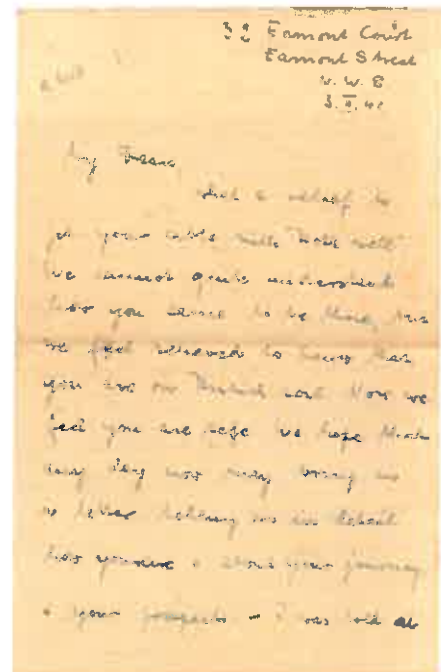 32 Eamont Court
Eamont Street
N. W. 8
3. II. 41
My
What a relief to
your cable with "both well"
we cannot quite understand
how you came to be there, but
we feel relieved to know that
you are on British soil. Now we
feel you are safe we hope that
any day now may bring us
a letter telling us in detail
how you are & about your journey
& your prospects - I was told at